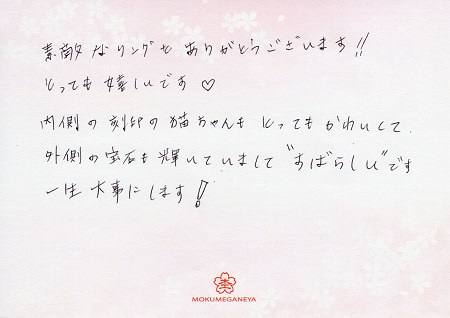 素敵なリングをありがとうございます!!
とっても嬉しいです♡
内側の刻印の猫ちゃんもとってもかわいくて
外側の宝石も輝いていまして"すばらしい"です
一生大事にします!
MOKUMEGANEYA